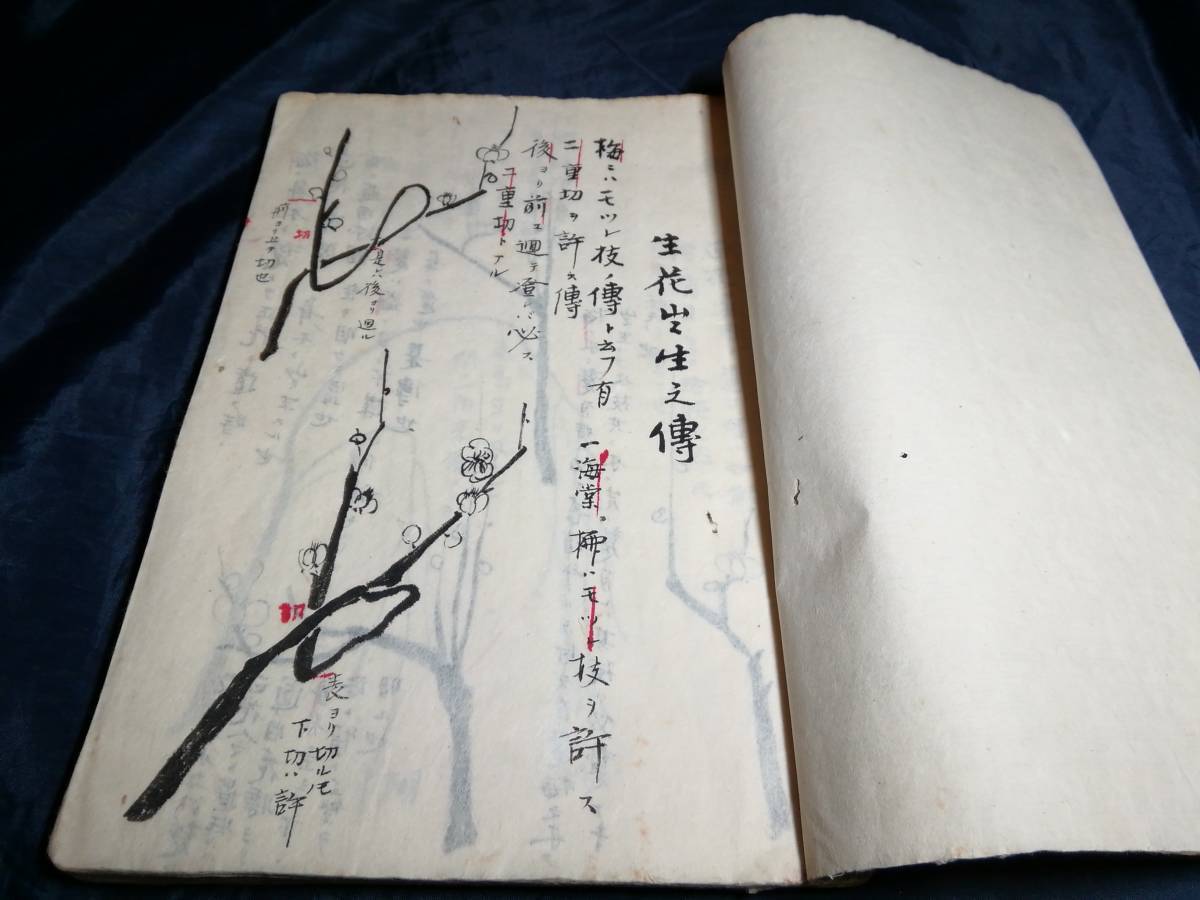 生花出生之傳
梅ニハモツレ枝ノ傳ト云フ有
一海棠 柳ハモツレ枝ヲ許ス
二重切ヲ許ス傳
後ヨリ前エ廻テ 必ス
二重切トアル
是ハ後ヨリ廻ル
切
前ヨリ 切也
切
表ヨリ切ルモノ
下切ハ許